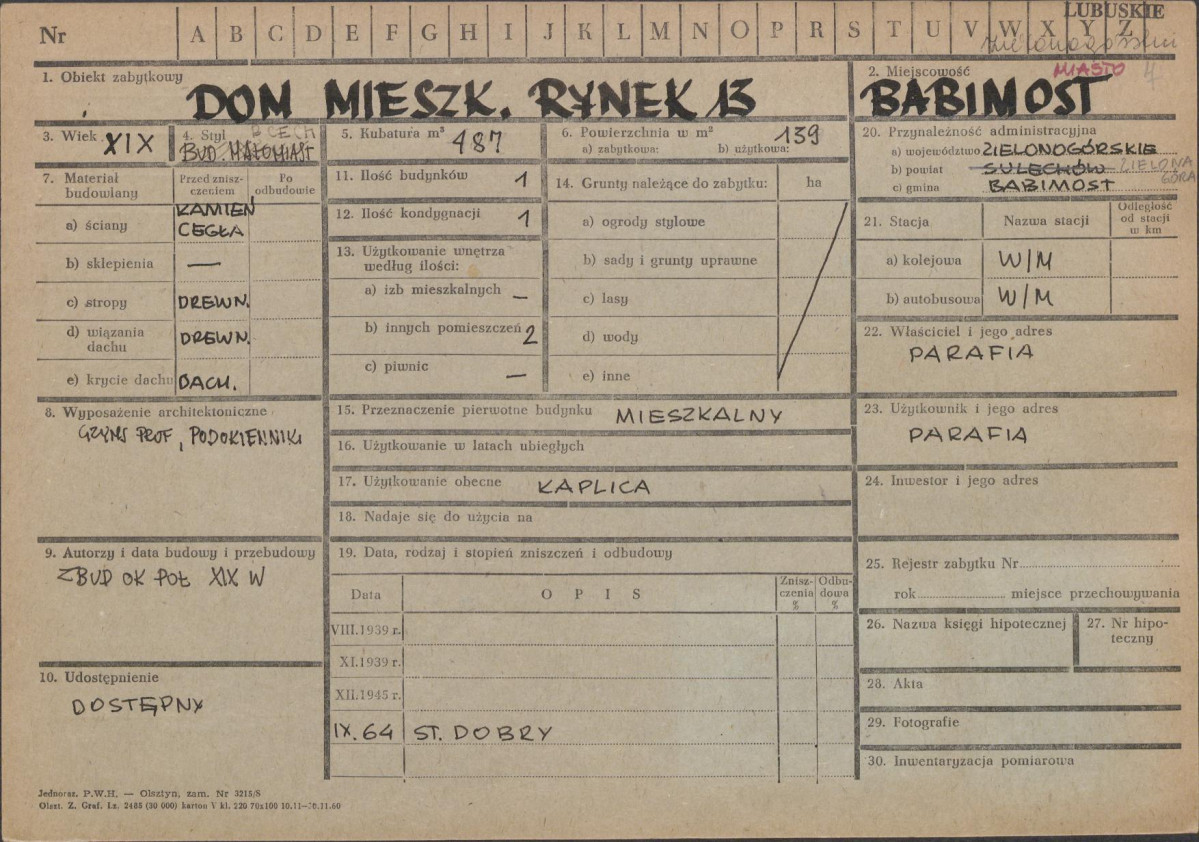 LUBUSKIE
Nr A B C D E F G H I J K L M N O P R S T U V W X Y Z
MIASTO 4
1. Obiekt zabytkowy
DOM MIESZK. RYNEK 13
2. Miejscowość
BABIMOST
3. Wiek XIX
4. Styl B. CECH
BUD. MAŁOMIAST
5. Kubatura m³ 487
6. Powierzchnia w m² 139
a) zabytkowa: b) użytkowa:
20. Przynależność administracyjna
a) województwo ZIELONOGÓRSKIE
b) powiat SULECHÓW ZIELONA GÓRA
c) gmina BABIMOST
7. Materiał budowlany
Przed zniszczeniem
Po odbudowie
a) ściany KAMIEŃ CEGŁA
b) sklepienia —
c) stropy DREWN.
d) wiązania dachu DREWN.
e) krycie dachu DACH.
8. Wyposażenie architektoniczne
GZYMS PROF, PODOKIENNIKI
9. Autorzy i data budowy i przebudowy
ZBUD OK POŁ XIX W
10. Udostępnienie
DOSTĘPNY
11. Ilość budynków 1
12. Ilość kondygnacji 1
13. Użytkowanie wnętrza
według ilości:
a) izb mieszkalnych —
b) innych pomieszczeń 2
c) piwnic —
14. Grunty należące do zabytku: ha
a) ogrody stylowe
b) sady i grunty uprawne
c) lasy
d) wody
e) inne
15. Przeznaczenie pierwotne budynku MIESZKALNY
16. Użytkowanie w latach ubiegłych
17. Użytkowanie obecne KAPLICA
18. Nadaje się do użycia na
19. Data, rodzaj i stopień zniszczeń i odbudowy
Data O P I S Zniszczenia % Odbudowa %
VIII.1939 r.
XI.1939 r.
XII.1945 r.
IX.64 ST. DOBRY
21. Stacja Nazwa stacji Odległość od stacji w km
a) kolejowa W/M
b) autobusowa W/M
22. Właściciel i jego adres
PARAFIA
23. Użytkownik i jego adres
PARAFIA
24. Inwestor i jego adres
25. Rejestr zabytku Nr
rok miejsce przechowywania
26. Nazwa księgi hipotecznej
27. Nr hipoteczny
28. Akta
29. Fotografie
30. Inwentaryzacja pomiarowa
Jednoraz. P.W.H. — Olsztyn, zam. Nr 3215/S
Olszt. Z. Graf. Lz. 2485 (30 000) karton V kl. 220 70x100 10.11—30.11.60